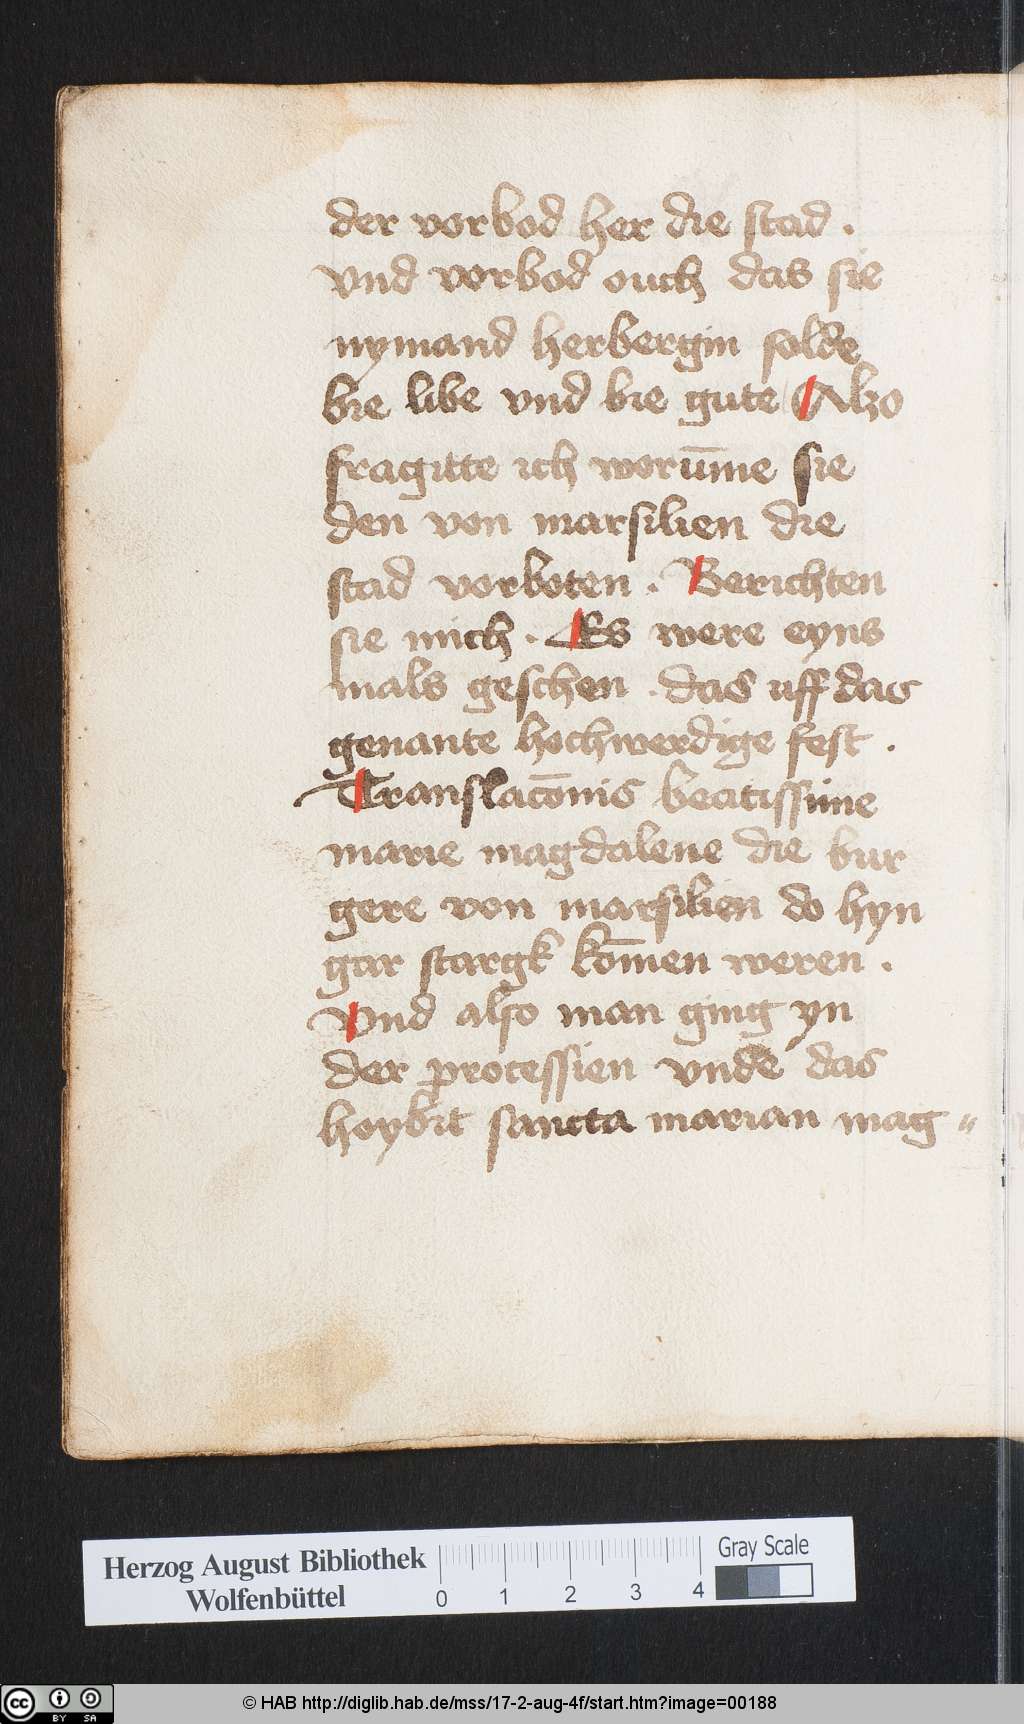 der vorbod her die stad .
vnd vorbod ouch das sie
nymand herbergin solde
bie libe vnd bie gute Alzo
fragitte ich worūme sie
den von marsilien die
stad vorboten . Berichten
sie mich . Es were eyns
mals geschen . das uff das
genante hochwerdige fest .
Translac̄onis beatissime
marie magdalene die bur
gere von marsilien do hyn
gar stargk kōmen weren .
Vnd also man ging yn
der processien vnde das
hoybit sancta marian mag〃
Herzog August Bibliothek
Wolfenbüttel
0 1 2 3 4
Gray Scale
cc BY SA
© HAB http://diglib.hab.de/mss/17-2-aug-4f/start.htm?image=00188